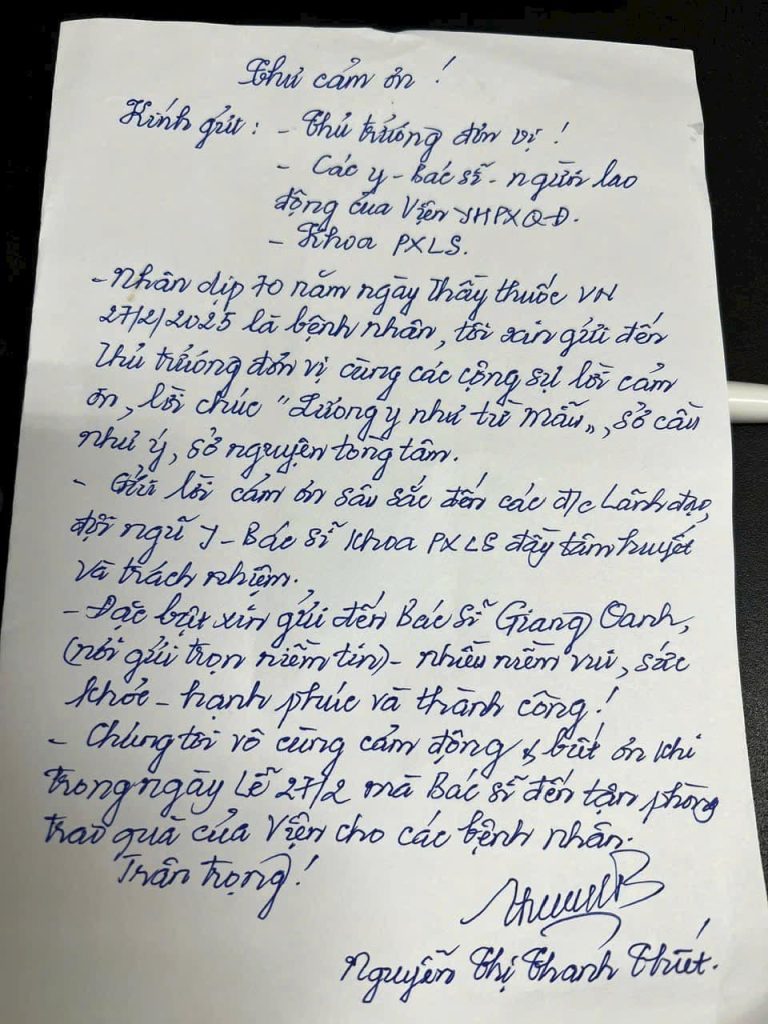 Thư cảm ơn !
Kính gửi : - Thủ trưởng đơn vị !
- Các y - Bác sĩ - người lao
động của Viện YHPXQĐ.
- Khoa PXLS.
- Nhân dịp 70 năm ngày Thầy thuốc VN
27/2/2025 là bệnh nhân, tôi xin gửi đến
Thủ trưởng đơn vị cùng các cộng sự lời cảm
ơn, lời chúc "Lương y như từ mẫu", sở cầu
như ý, sở nguyện tòng tâm.
- Gửi lời cảm ơn sâu sắc đến các đ/c Lãnh đạo,
đội ngũ Y - Bác sĩ Khoa PXLS đầy tâm huyết
và trách nhiệm.
- Đặc biệt xin gửi đến Bác sĩ Giang Oanh,
(nơi gửi trọn niềm tin) - nhiều niềm vui, sức
khỏe - hạnh phúc và thành công !
- Chúng tôi vô cùng cảm động & biết ơn khi
trong ngày Lễ 27/2 mà Bác sĩ đến tận phòng
trao quà của Viện cho các bệnh nhân.
Trân trọng !
Nguyễn Thị Thanh Thiết.